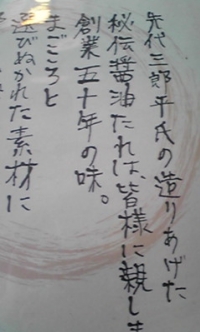 先代三郎平氏の造りあげた
秘伝醤油たれは、皆様に親しま
創業五十年の味。
まごころと
選びぬかれた素材に